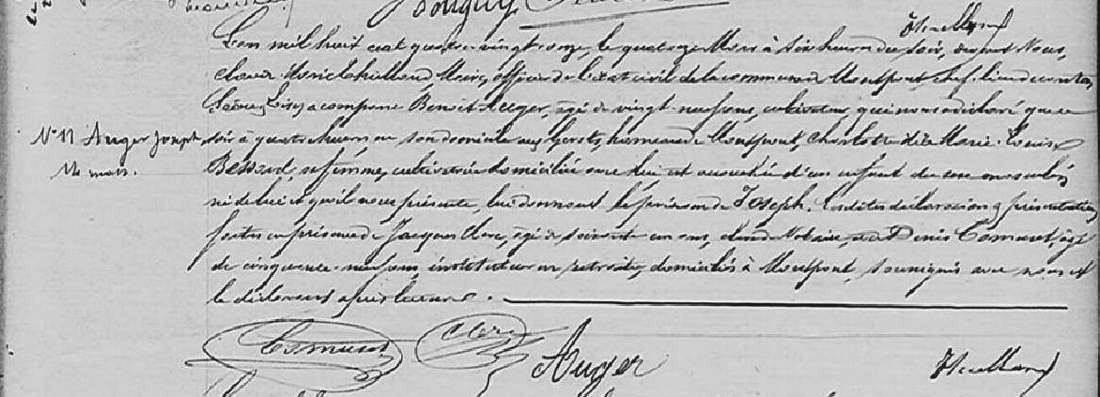 L'an mil huit cent quatre-vingt onze, le quatorze Mars à six heures du soir, devant Nous,
Maire, officier de l'état civil de la commune de Montpont, chef-lieu de canton,
a comparu Benoit Auger, âgé de vingt neuf ans, cultivateur, qui nous a déclaré que ce
N° 11 Auger Joseph
14 mars.
soir à quatre heures en son domicile aux hameau de Montpont, Charlotte dite Marie-Louise
Bessard, sa femme, cultivatrice domiciliée avec lui est accouchée d'un enfant du sexe masculin
né de lui et qu'il nous présente, lui donnant le prénom de Joseph. Lesdites déclaration & présentation
faites en présence de Jacques Clerc, âgé de soixante un ans, clerc de Notaire, et Denis Comunt, âgé
de cinquante-neuf ans, instituteur en retraite, domiciliés à Montpont, soussignés avec nous et
le déclarant après lecture.
Clerc
Auger